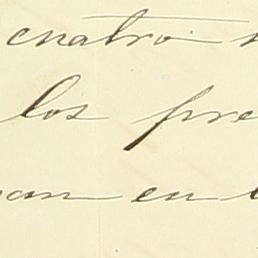 cuatro
los pre
en